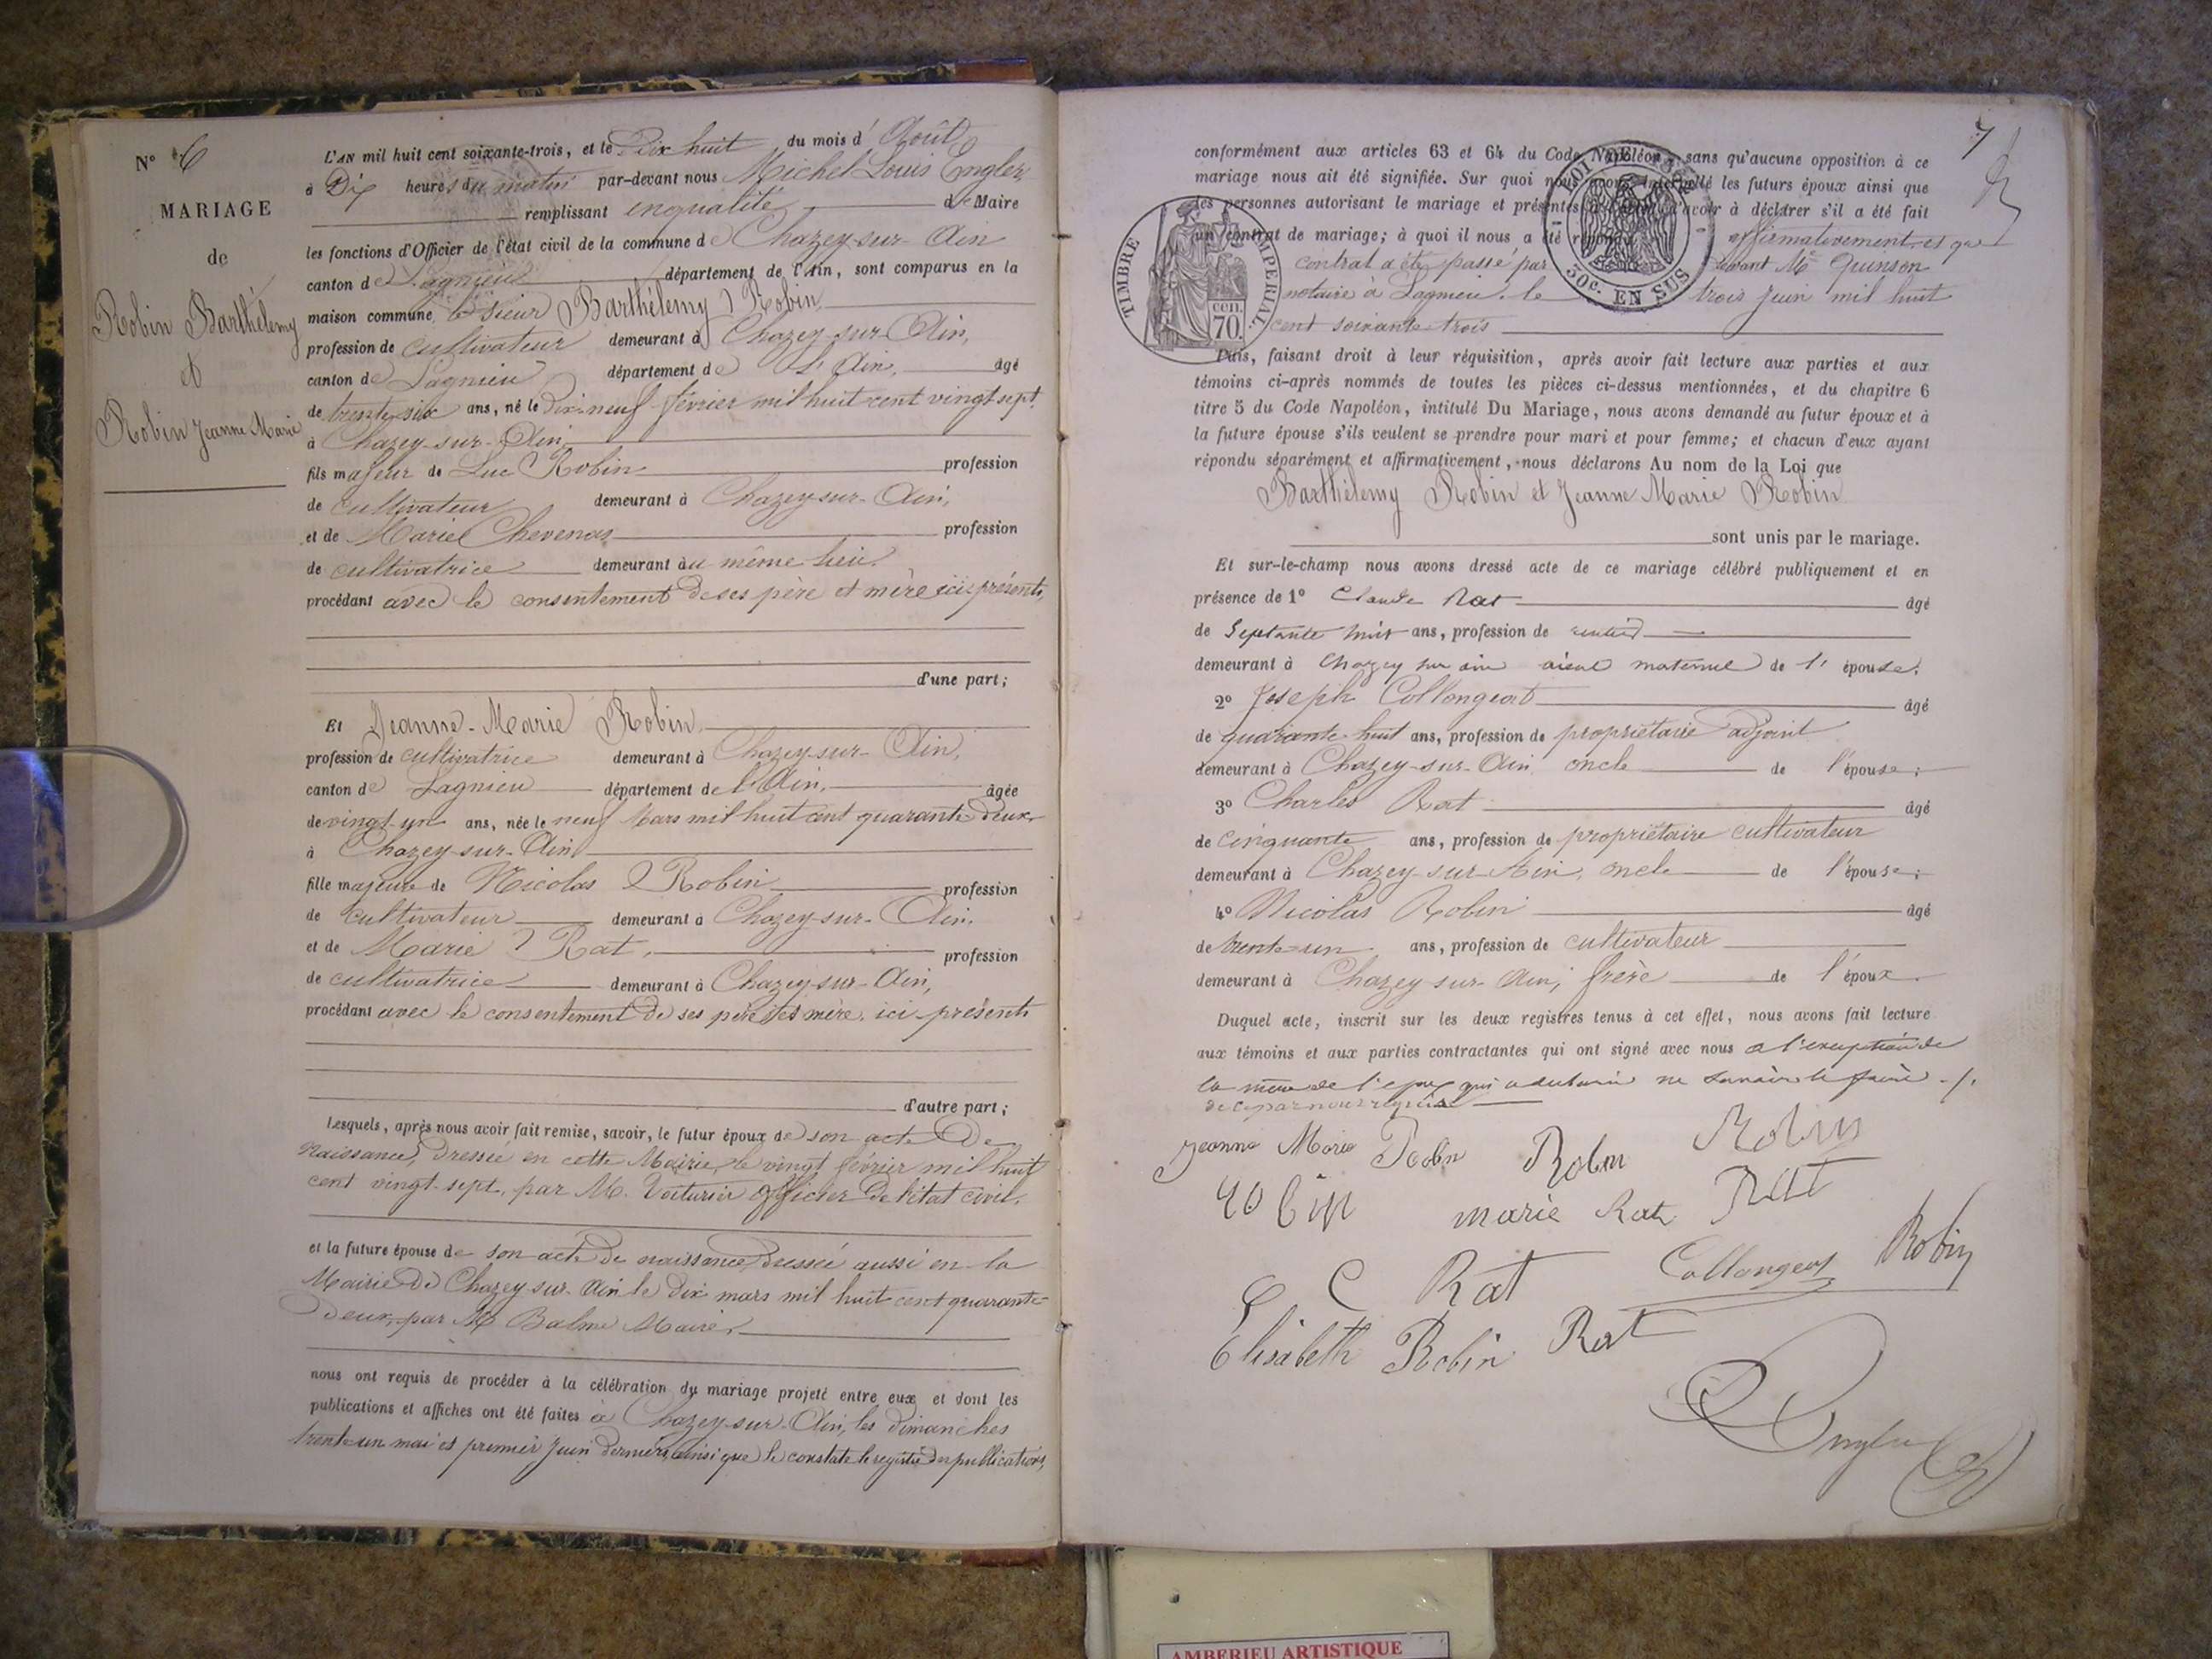 N° 6
MARIAGE
de
Robin Barthélemy
et
Robin Jeanne Marie
L'AN mil huit cent soixante-trois, et le Dix huit du mois d' Août
à Dix heures du matin par-devant nous Michel Louis Engler,
remplissant en qualité de Maire
les fonctions d'Officier de l'état civil de la commune de Chazey-sur-Ain
canton de Lagnieu département de l'Ain, sont comparus en la
maison commune, le sieur Barthélemy Robin,
profession de cultivateur demeurant à Chazey-sur-Ain,
canton de Lagnieu département de l'Ain, âgé
de trente-six ans, né le Dix-neuf février mil huit cent vingt sept,
à Chazey-sur-Ain,
fils majeur de Luc Robin profession
de cultivateur demeurant à Chazey-sur-Ain,
et de Marie Chevenas profession
de cultivatrice demeurant au même lieu.
procédant avec le consentement de ses père et mère ici présents,
d'une part;
Et Jeanne-Marie Robin,
profession de cultivatrice demeurant à Chazey-sur-Ain,
canton de Lagnieu département de l'Ain, âgée
de vingt-un ans, née le neuf Mars mil huit cent quarante deux
à Chazey-sur-Ain
fille majeure de Nicolas Robin profession
de cultivateur demeurant à Chazey-sur-Ain,
et de Marie Rat, profession
de cultivatrice demeurant à Chazey-sur-Ain,
procédant avec le consentement de ses père et mère, ici présents
d'autre part;
Lesquels, après nous avoir fait remise, savoir, le futur époux de son acte de
naissance, dressée en cette Mairie, le vingt février mil huit
cent vingt-sept, par M. Voiturier officier de l'état civil,
et la future épouse de son acte de naissance dressée aussi en la
Mairie de Chazey-sur-Ain le dix mars mil huit cent quarante-
deux, par M Balme Maire,
nous ont requis de procéder à la célébration du mariage projeté entre eux et dont les
publications et affiches ont été faites à Chazey-sur-Ain, les dimanches
trente-un mai et premier juin derniers, ainsi que le constate le registre des publications,
7
conformément aux articles 63 et 64 du Code Napoléon, sans qu'aucune opposition à ce
mariage nous ait été signifiée. Sur quoi nous avons interpellé les futurs époux ainsi que
les personnes autorisant le mariage et présentes d'avoir à déclarer s'il a été fait
un contrat de mariage; à quoi il nous a été répondu affirmativement et que
contrat a été passé par devant Me Quinson
notaire à Lagnieu, le trois juin mil huit
cent soixante-trois
TIMBRE IMPERIAL
cen. 70.
50c. EN SUS
Puis, faisant droit à leur réquisition, après avoir fait lecture aux parties et aux
témoins ci-après nommés de toutes les pièces ci-dessus mentionnées, et du chapitre 6
titre 5 du Code Napoléon, intitulé Du Mariage, nous avons demandé au futur époux et à
la future épouse s'ils veulent se prendre pour mari et pour femme; et chacun d'eux ayant
répondu séparément et affirmativement, nous déclarons Au nom de la Loi que
Barthélemy Robin et Jeanne Marie Robin
sont unis par le mariage.
Et sur-le-champ nous avons dressé acte de ce mariage célébré publiquement et en
présence de 1° Claude Rat âgé
de Septante huit ans, profession de rentier
demeurant à Chazey sur ain aïeul maternel de l' épouse.
2° Joseph Collongeat âgé
de quarante-huit ans, profession de propriétaire adjoint
demeurant à Chazey-sur-Ain, oncle de l'épouse;
3° Charles Rat âgé
de cinquante ans, profession de propriétaire cultivateur
demeurant à Chazey-sur-Ain, oncle de l'épouse;
4° Nicolas Robin âgé
de trente-un ans, profession de cultivateur
demeurant à Chazey-sur-Ain, frère de l'époux.
Duquel acte, inscrit sur les deux registres tenus à cet effet, nous avons fait lecture
aux témoins et aux parties contractantes qui ont signé avec nous a l'exception de
la mère de l'époux qui a déclaré ne savoir le faire ./.
de ce par nous requise
Jeanne Marie Robin Robin Robin
robin marie Rat Rat
C Rat Collongeat Robin
Elisabeth Robin Rat
Engler
AMBERIEU ARTISTIQUE